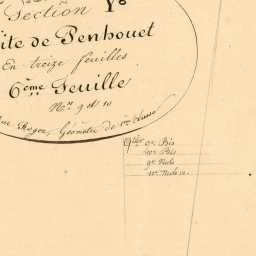 Section Yº
ite de Penhouet
En treize feuilles
6ème Feuille
Nos 9 et 10
Roger, Géomètre de 1ère Classe
9e Bis
10e Bis